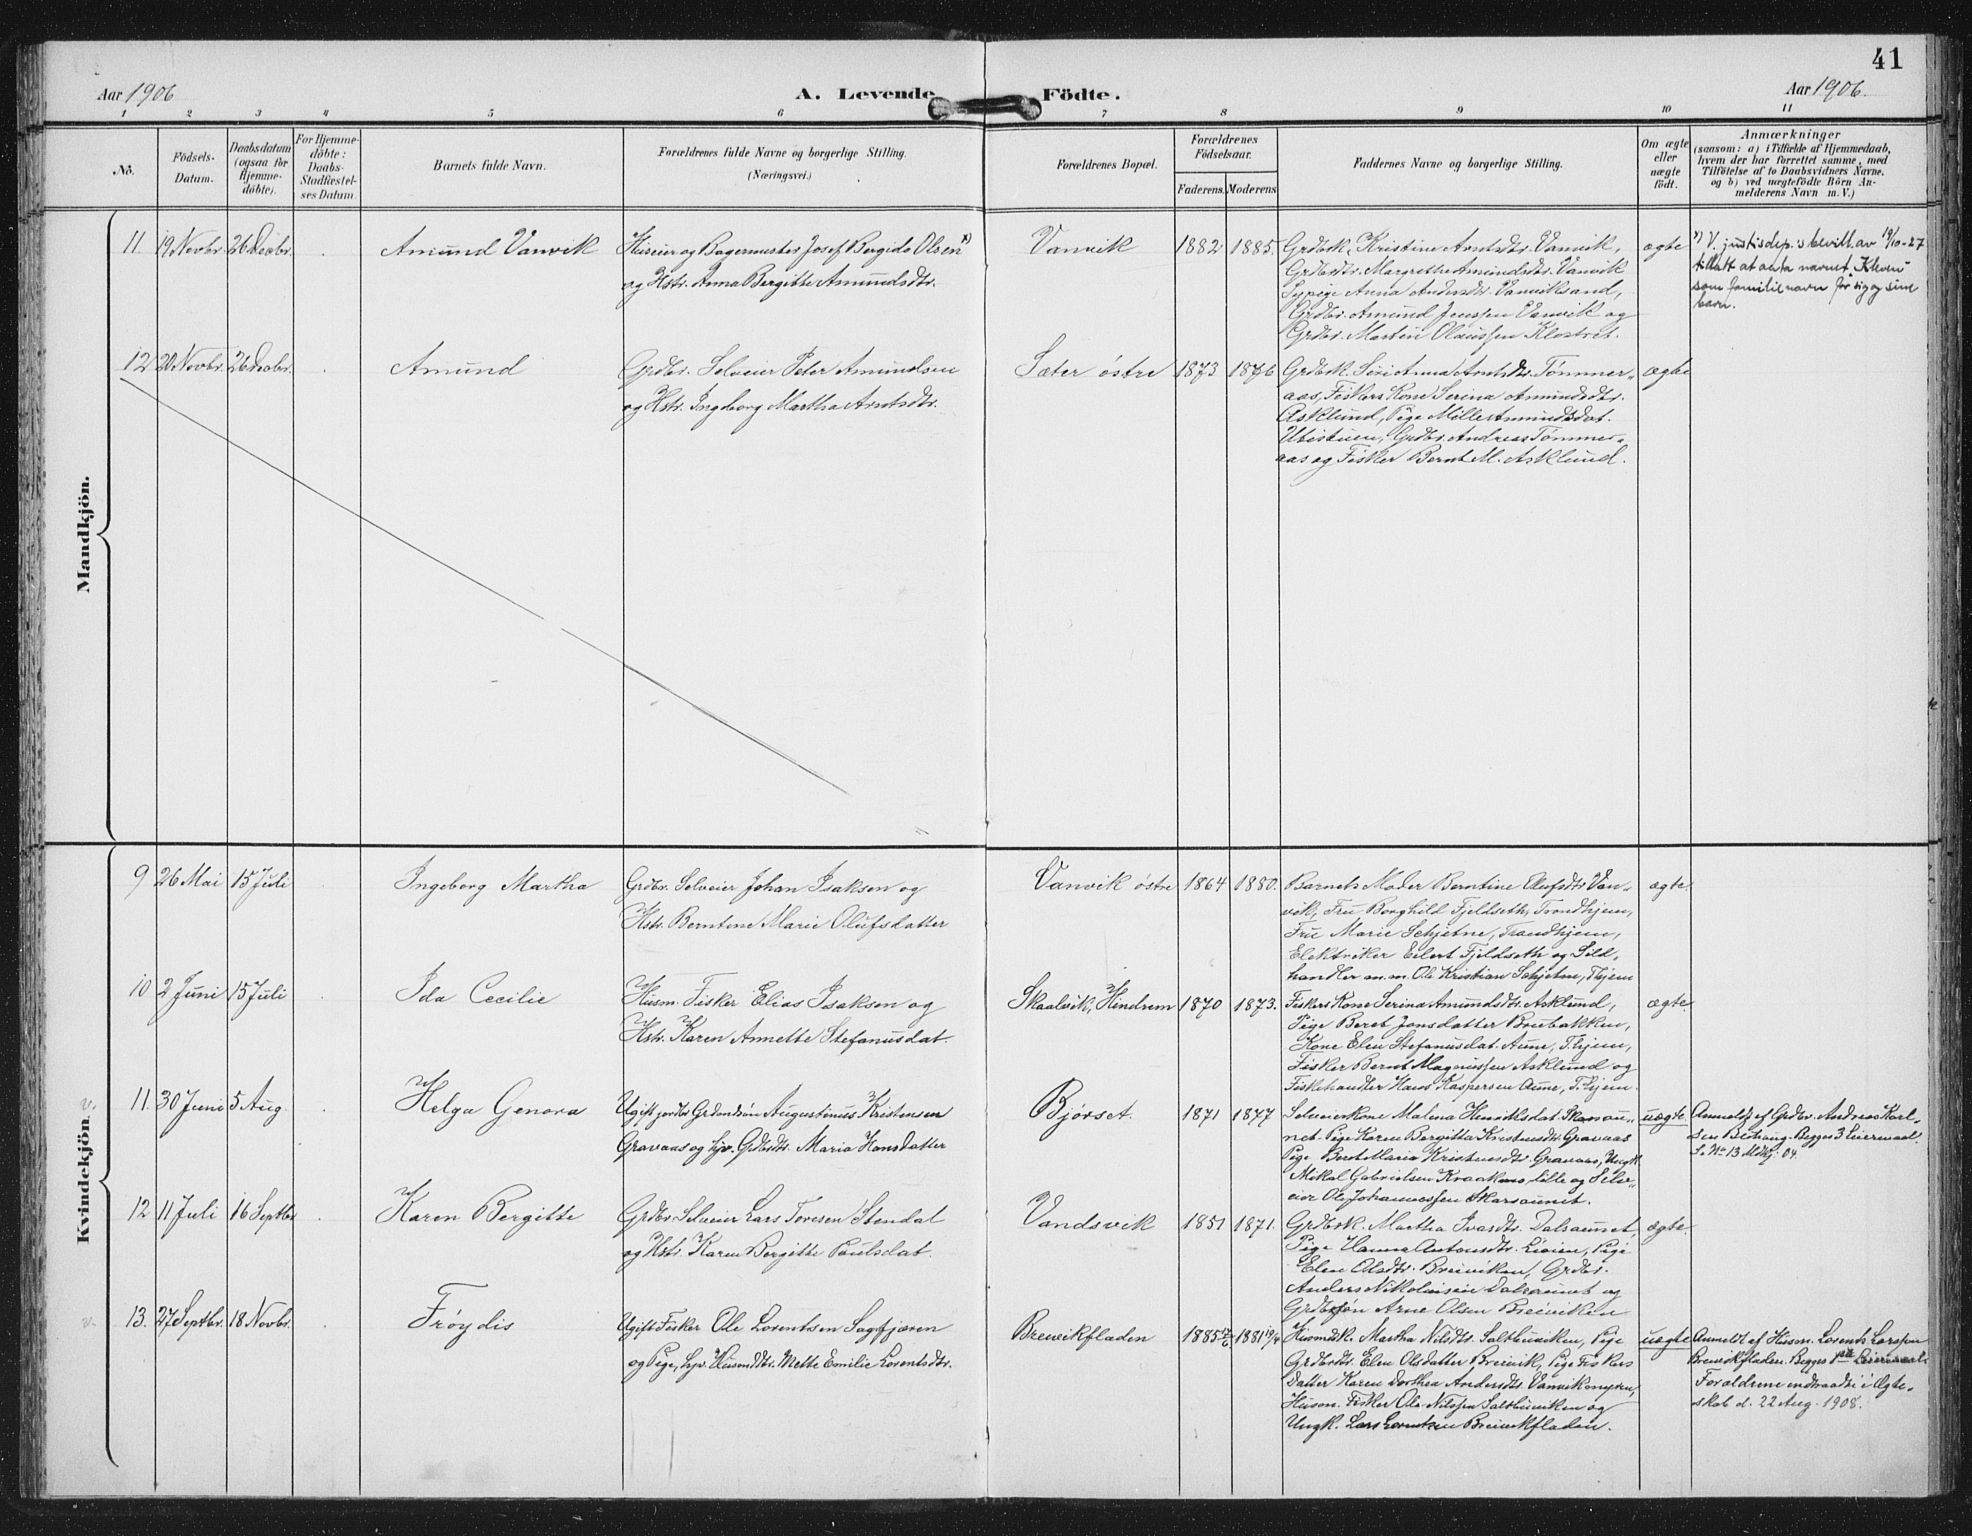 41
Aar 1906 A. Levende Födte. Aar 1906.
1 2 3 4 5 6 7 8 9 10 11
No.
Födsels-
Datum.
Daabsdatum
(ogsaa for
Hjemme-
döbte).
For Hjemme-
döbte:
Daabs-
Stadfæstel-
ses Datum
Barnets fulde Navn.
Forældrenes fulde Navne og borgerlige Stilling.
(Næringsvei.)
Forældrenes Bopæl.
Forældrenes
Födselsaar.
Faderens. Moderens
Faddernes Navne og borgerlige Stilling.
Om ægte
eller
uægte
födt.
Anmærkninger
(saasom: a) i Tilfælde af Hjemmedaab,
hvem der har forrettet samme, med
Tilföielse af to Daabsvidners Navne.
og b) ved uægtefödte Börn An-
melderens Navn m.V.)
Mandkjön.
11 19 Novbr. 26 Decbr. Amund Vanvik
Huseier og Bagermester Josef Bergido Olsen x)
og Hstr. Anna Bergitte Amundsdtr.
Vanvik 1882 1885.
Grdbrk. Kristine Arntsdtr. Vanvik,
Grdbrdtr. Margrethe Amundsdtr. Vanvik
Sypige Anna Andersdtr. Vanviksand,
Grdbr. Amund Jenssen Vanvik og
Grdbr. Martin Olaussen Klostret.
ægte
x) V. justisdep.s bevill. av 19/10-27
tillatt at anta navnet "Kleven"
som familienavn for sig og sine
barn.
12 20 Novbr. 26 Decbr. Amund
Grdbr. Selveier Peter Amundsen
og Hstr. Ingeborg Martha Arntsdtr.
Sæter østre 1873 1876
Grdbrk. Siri Anna Arntsdtr. Tømmer-
aas, Fiskers Kone Serina Amundsdtr.
Asklund, Pige Mille Amundsdat.
Utistuen, Grdbr. Andreas Tømmer-
aas og Fisker Bernt M. Asklund.
ægte
Kvindekjön.
9 26 Mai 15 Juli Ingeborg Martha
Grdbr. Selveier Johan Isaksen og
Hstr. Berntine Marie Olufsdatter
Vanvik østre 1864 1880.
Barnets Moder Berntine Olufsdtr. Van-
vik, Fru Borghild Fjeldseth, Trondhjem,
Fru Marie Schjetne, Trondhjem,
Elektriker Eilert Fjeldseth og Sild-
handler m.m. Ole Kristian Schjetne, Thjem
ægte.
10 2 Juni 15 Juli Ida Cecilie
Husm. Fisker Elias Isaksen og
Hstr. Karen Annette Stefanusdat.
Skaalvik, Hindrem 1870 1873.
Fiskers Kone Serina Amundsdtr. Asklund,
Pige Beret Jonsdatter Brubakken,
Kone Elen Stefanusdat. Aune, T.hjem,
Fisker Bernt Magnussen Asklund og
Fiskehandler Hans Kaspersen Aune, T.hjem.
ægte.
v. 11. 30 Juni 5 Aug. Helga Genora
Ugift jordbr. Grdmdsøn Augustinus Kristensen
Gravaas og hjv. Grdbrdtr. Maria Hansdatter
Bjørset. 1871 1877
Selveierkone Malena Henriksdat. Skarsau-
net. Pige Karen Bergitta Kristensdtr. Gravaas
Pige Beret Maria Kristensdtr. Gravaas, Ungk.
Mikal Gabrielsen Kraakmo lille og Selv-
eier Ole Johannessen Skarsaunet.
uægte.
Anmeldt af Grdbr. Andreas Karl-
sen Bithaug. Begges 3 Leiermaal
S. No 13 Mdkj. 04.
12 11 Juli 16 Septbr Karen Bergitte
Grdbr. Selveier Lars Toresen Stendal
og Hstr. Karen Bergitte Paulsdat.
Vandsvik 1851 1871.
Grdbrk. Martha Ivarsdtr. Dalsaunet,
Pige Hanna Antonsdtr. Liveien, Pige
Elen Olsdtr. Breiviken, Grdbr.
Anders Nikolaisen Dalsaunet og
Grdbrsøn Arne Olsen Breiviken
ægte.
v. 13. 27 Septbr. 18 Novbr. Frøydis
Ugift Fisker Ole Lorentsen Sagfjæren
og Pige, hjv. Husmdtr. Mette Emilie Lorentsdtr.
Breivikfladen 1885 1881
Husmdk. Martha Nilsdtr. Salthusviken, Pige
Grdbrdtr. Elen Olsdatter Breivik, Pige Fiskers
Datter Karen Dorthea Andersdtr. Vanvikmyren,
Husm. Fisker Ole Nilssen Salthusviken og
Ungk. Lars Lorentsen Breivikfladen.
uægte
Anmeldt af Husm. Lorents Larssen
Breivikfladen. Begges 1ste Leiermaal.
Forældrene indtraadte i Ægte-
skab d. 22 Aug. 1908.